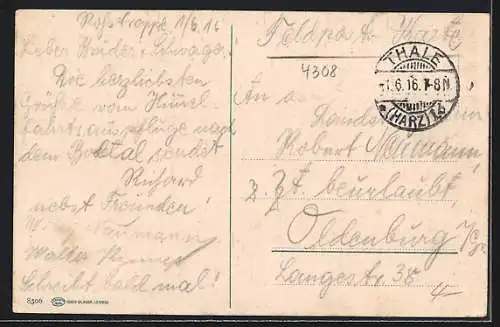 Roßtrappe 1/6.16
Lieber Bruder u. Schwager!
Die herzlichsten
Grüße vom Himmel-
fahrtsausfluge nach
dem Bodetal sendet
Richard
nebst Freunden!
Neumann
Walter
Schreibt bald mal!
8500
Feldpost-Karte
4308
THALE
1.6.16. 7-8N.
(HARZ) 1b
An den
Landsturmmann
Robert Neumann,
z. Zt. beurlaubt,
Oldenburg i/Gr.
Langestr. 38